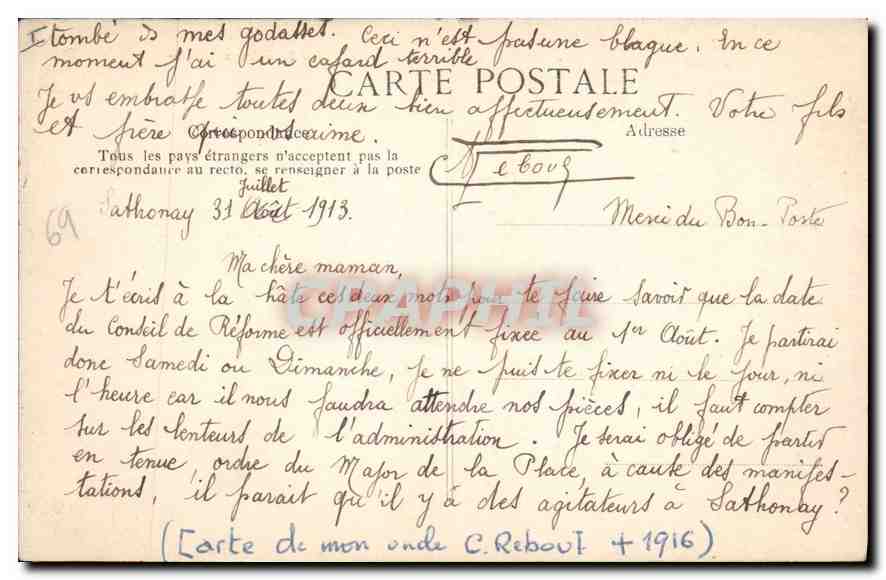 I tombé ds mes godasses. Ceci n'est pas une blague. En ce
moment j'ai un cafard terrible
CARTE POSTALE
Je vs embrasse toutes deux bien affectueusement. Votre fils
et frère qui vs aime.
Correspondance
Adresse
Tous les pays étrangers n'acceptent pas la
correspondance au recto, se renseigner à la poste
C Rebouf
69
Juillet
Sathonay 31 Août 1913.
Merci du Bon-Poste
Ma chère maman,
CPAPHIL
Je t'écris à la hâte ces deux mots pour te faire savoir que la date
du Conseil de Réforme est officiellement fixée au 1er Août. Je partirai
donc Samedi ou Dimanche, je ne puis te fixer ni le jour, ni
l'heure car il nous faudra attendre nos pièces, il faut compter
sur les lenteurs de l'administration. Je serai obligé de partir
en tenue, ordre du Major de la Place, à cause des manifes-
tations, il parait qu'il y à des agitateurs à Sathonay ?
(Carte de mon oncle C. Rebouf + 1916)